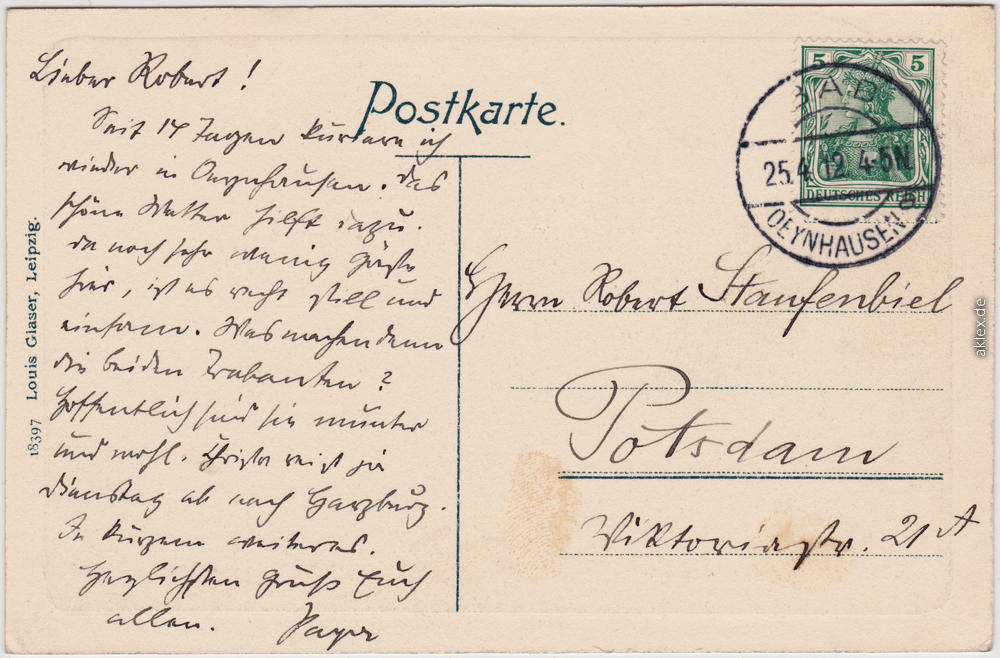 Lieber Robert!
Seit 14 Tagen kuriere ich
wieder in Oeynhausen. Das
schöne Wetter hilft dazu.
Da noch sehr wenig Gäste
hier, ist es recht still und
einsam. Was machen denn
die beiden Trabanten?
Hoffentlich sind sie munter
und wohl. reist ja
Dienstag ab nach Harzburg.
In kurzem weiteres.
Herzlichsten Gruß Euch
allen.
Postkarte.
5 5
DEUTSCHES REICH
BAD
25.4.12 4-5N
OEYNHAUSEN
Herrn Robert Staufenbiel
Potsdam
Viktoriastr. 21A
18397 Louis Glaser, Leipzig.
aklex.de